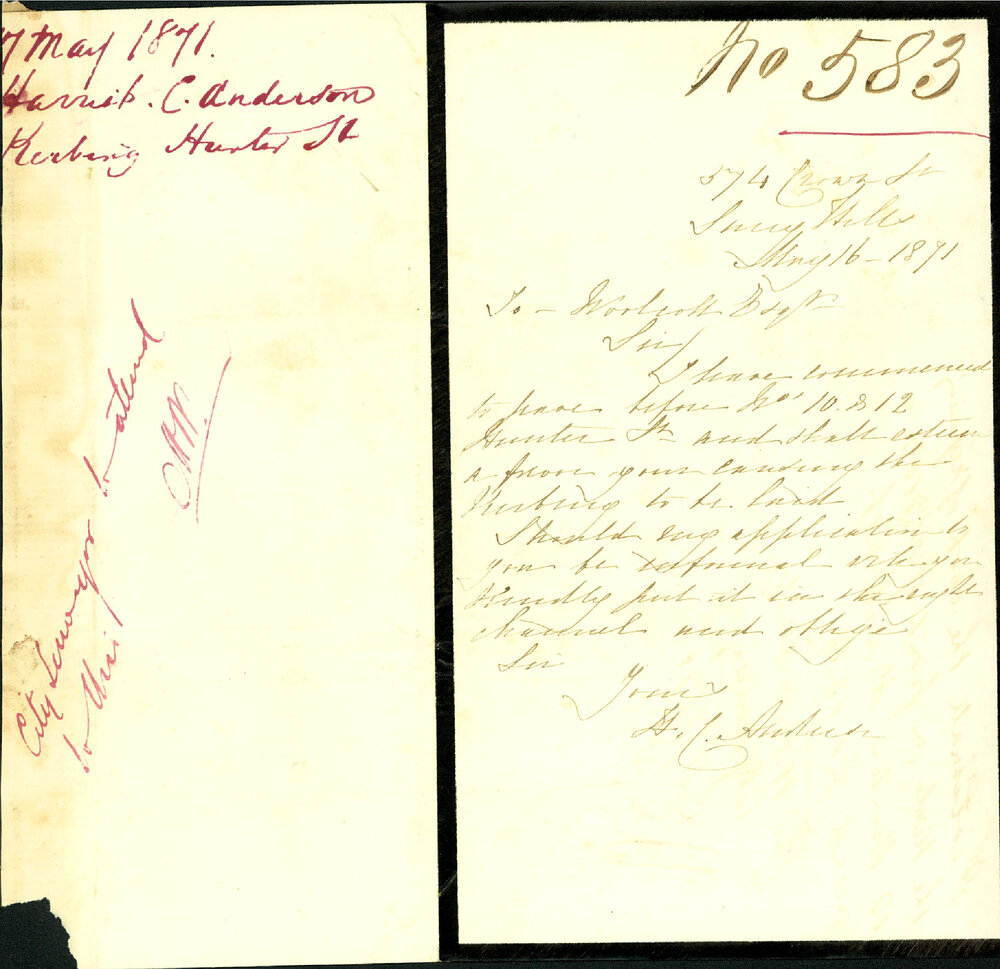 17 May 1871.
Harriet. C. Anderson
Kerbing Hunter St
City Surveyor to attend
to this
No 583
574 Crown St
Surry Hills
May 16 - 1871
To - Woolcott Esqr
Sir
I have commenced
to pave before No 10 & 12
Hunter St and shall esteem
a favor your causing the
Kerbing to be laid
Should my application to
you be informal will you
Kindly put it in the right
channel and oblige
Sir
Yours
H. C. Anderson